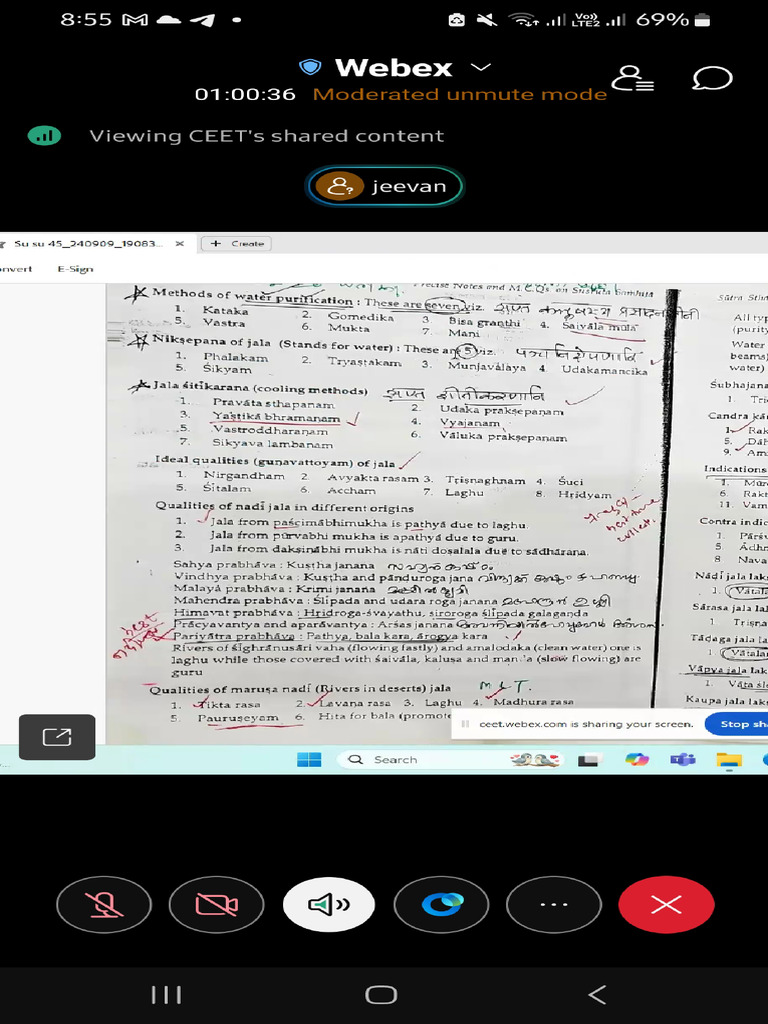 8:55
Vo) LTE2
69%
Webex
01:00:36 Moderated unmute mode
Viewing CEET's shared content
jeevan
Su su 45_240909_19083... × + Create
onvert E-Sign
Notes and M.C.Qs. on Suśruta Samhita
Methods of water purification : These are seven viz.
1. Kataka 2. Gomedika 3. Bisa granthi 4. Śaivāla mula
5. Vastra 6. Mukta 7. Mani
Nikṣepana of jala (Stands for water) : These are 5 viz.
1. Phalakam 2. Tryaṣtakam 3. Munjavālaya 4. Udakamancika
5. Śikyam
Jala śitīkarana (cooling methods)
1. Pravāta sthapanam 2. Udaka prakṣepaṇam
3. Yaṣtikā bhramanam 4. Vyajanam
5. Vastroddharaṇam 6. Vāluka prakṣepanam
7. Sikyava lambanam
Ideal qualities (guṇavattoyam) of jala
1. Nirgandham 2. Avyakta rasam 3. Triṣnaghnam 4. Śuci
5. Śitalam 6. Accham 7. Laghu 8. Hṛidyam
Qualities of nadī jala in different origins
1. Jala from paścimābhimukha is pathyā due to laghu.
2. Jala from purvābhi mukha is apathyā due to guru.
3. Jala from dakṣinābhi mukha is nāti doṣalala due to sādhāraṇa.
Sahya prabhāva : Kuṣṭha janana
Vindhya prabhāva : Kuṣṭha and pānduroga jana
Malayā prabhāva : Krimi janana
Mahendra prabhāva : Ślipada and udara roga janana
Himavat prabhāva : Hridroga-śvayathu, siroroga ślipada galaganda
Prācyavantya and aparāvantya : Arśas janana
Pariyātra prabhāva : Pathya, bala kara, ārogya kara
Rivers of śīghrānusāri vaha (flowing fastly) and amalodaka (clean water) one is
laghu while those covered with śaivāla, kaluṣa and manda (slow flowing) are
guru
Qualities of maruṣa nadī (Rivers in deserts) jala M L T.
1. Tikta rasa 2. Lavana rasa 3. Laghu 4. Madhura rasa
5. Pauruṣeyam 6. Hita for bala (promote
Sūtra Sthā
All typ
(purity
Water
beams)
water)
Śubhajana
1. Tri
Candra kā
1. Rak
5. Dāh
9. Am
Indications
1. Mūr
6. Rakt
11. Vam
Contra indic
1. Pārś
5. Ādhr
8. Nava
Nādī jala lak
1. Vātala
Sārasa jala l
1. Triṣna
Tāḍaga jala l
1. Vātala
Vāpya jala lak
1. Vāta śl
Kaupa jala lak
ceet.webex.com is sharing your screen. Stop sha
Search